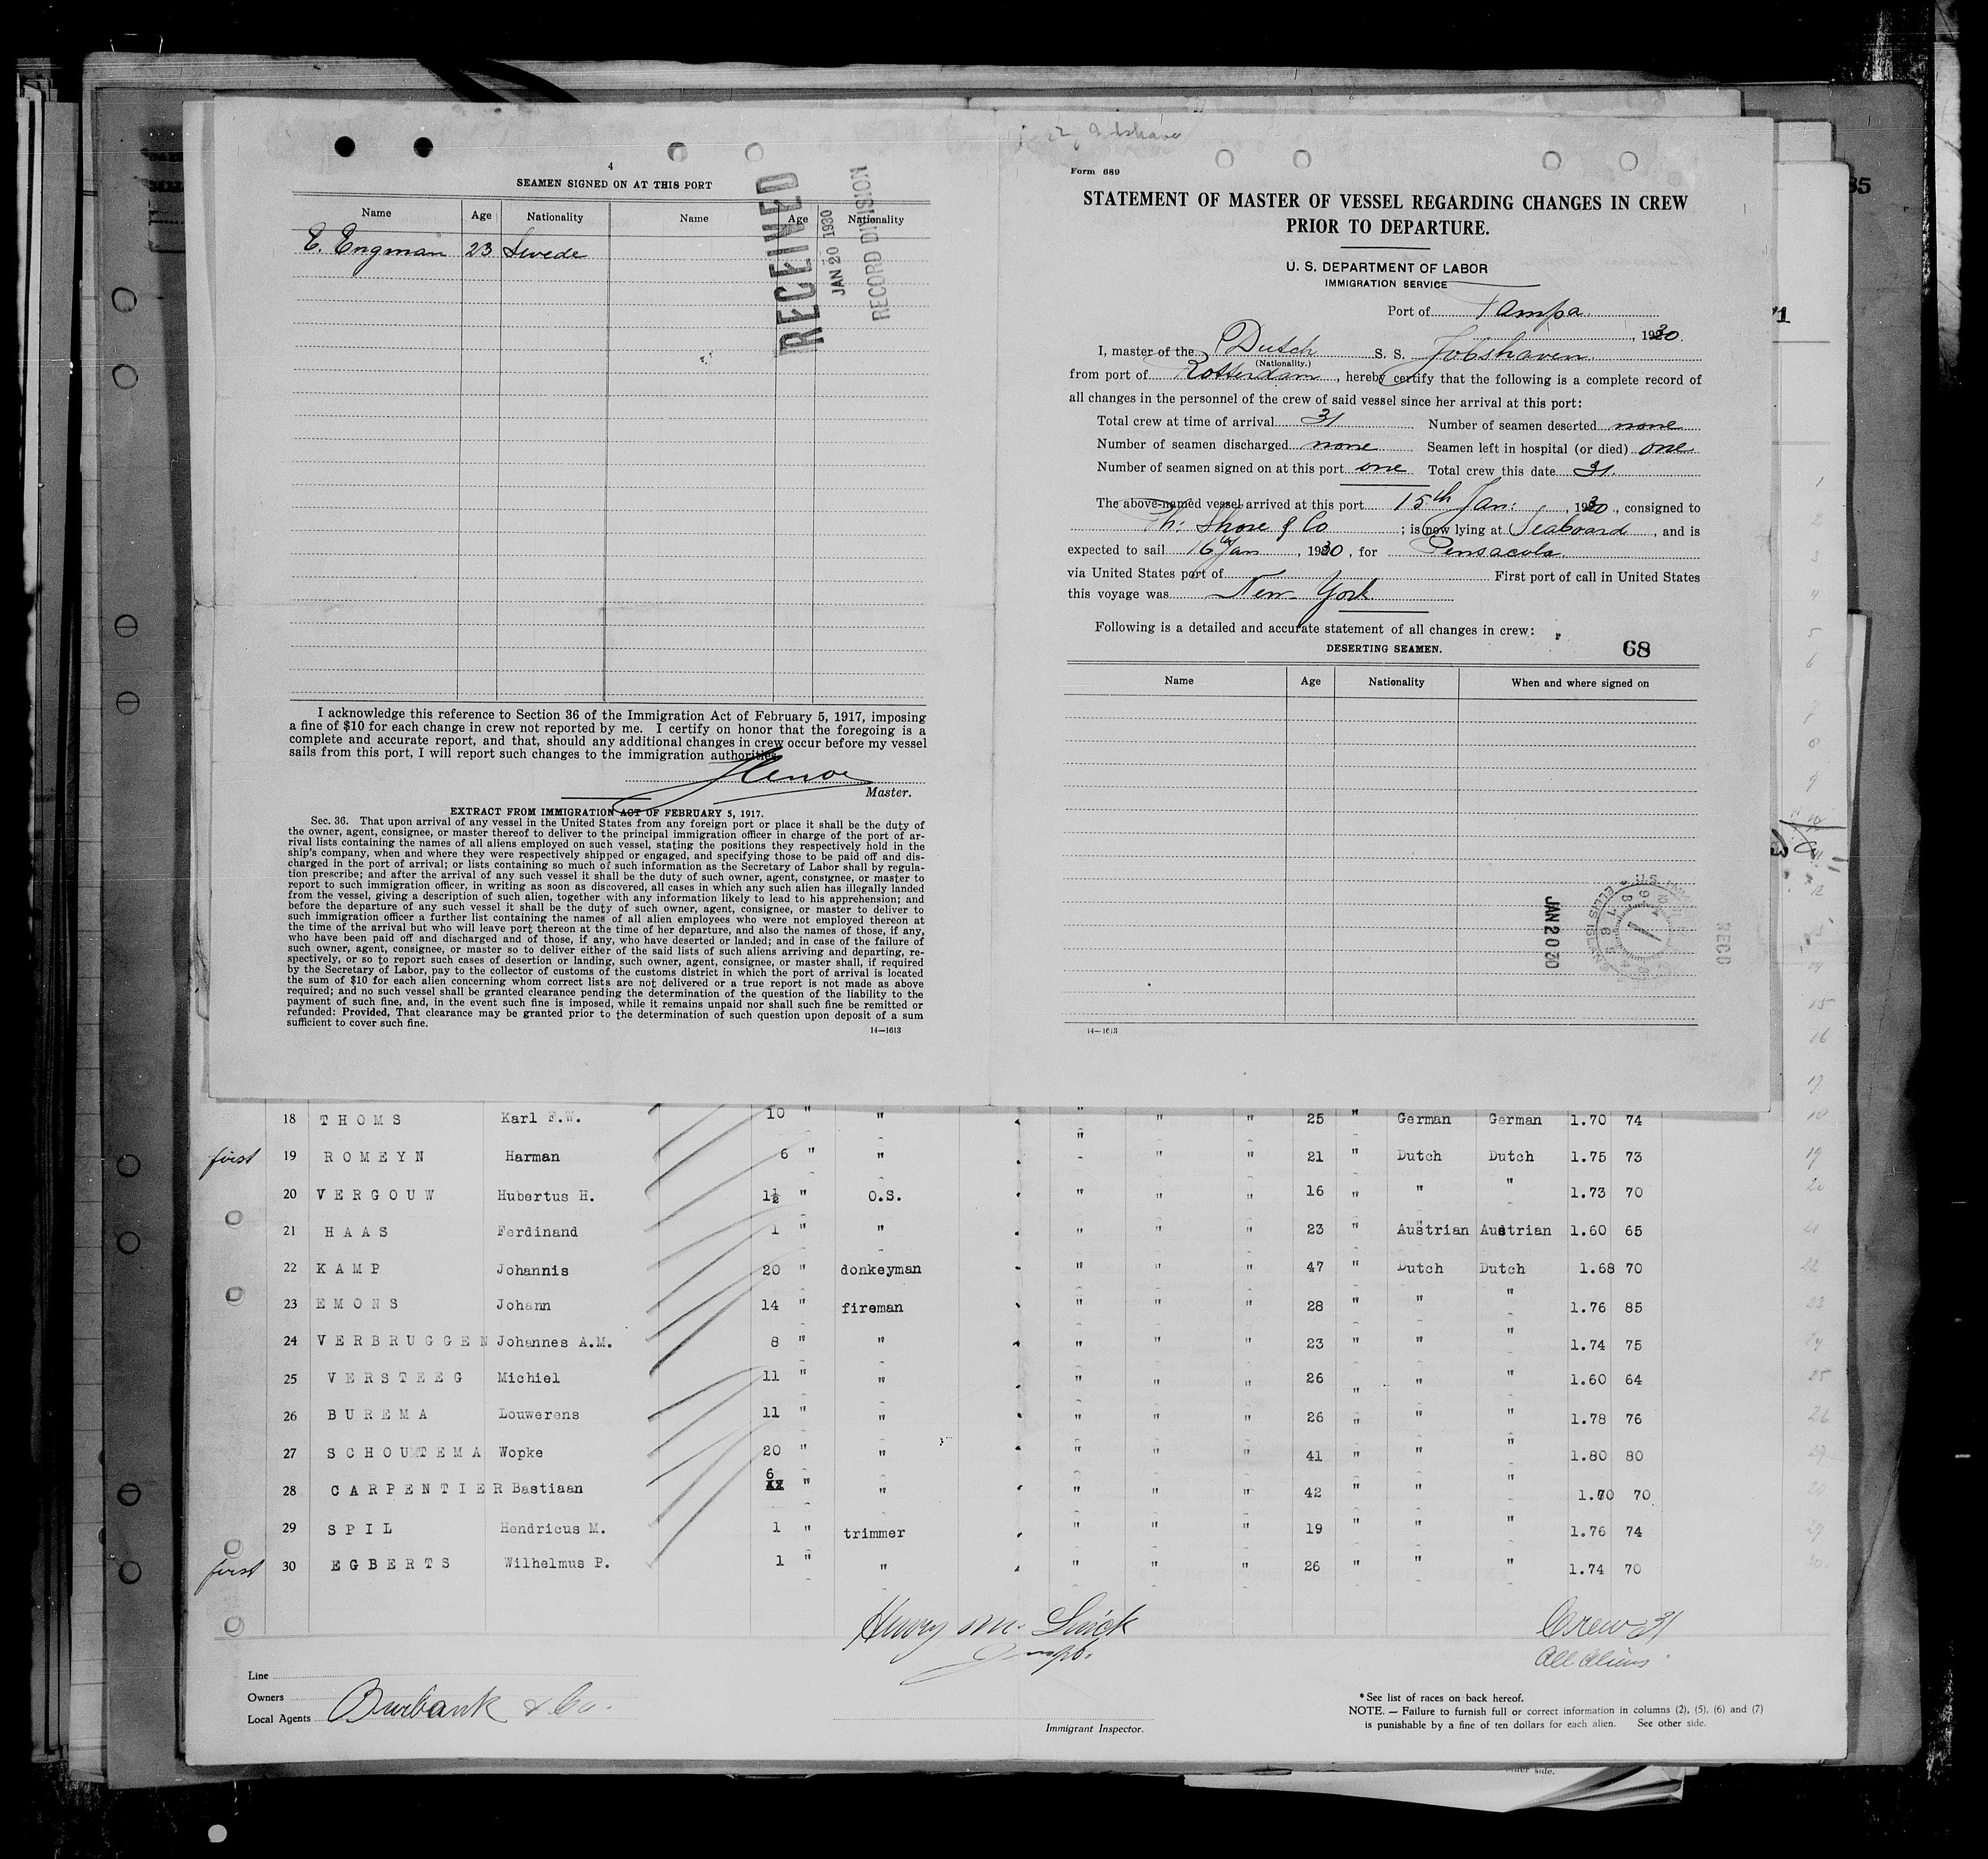 4
SEAMEN SIGNED ON AT THIS PORT
Name Age Nationality Name Age Nationality
E. Engman 23 Swede
RECEIVED
JAN 20 1930
RECORD DIVISION
I acknowledge this reference to Section 36 of the Immigration Act of February 5, 1917, imposing
a fine of $10 for each change in crew not reported by me. I certify on honor that the foregoing is a
complete and accurate report, and that, should any additional changes in crew occur before my vessel
sails from this port, I will report such changes to the immigration authorities.
Master.
EXTRACT FROM IMMIGRATION ACT OF FEBRUARY 5, 1917.
Sec. 36. That upon arrival of any vessel in the United States from any foreign port or place it shall be the duty of
the owner, agent, consignee, or master thereof to deliver to the principal immigration officer in charge of the port of ar-
rival lists containing the names of all aliens employed on such vessel, stating the positions they respectively hold in the
ship's company, when and where they were respectively shipped or engaged, and specifying those to be paid off and dis-
charged in the port of arrival; or lists containing so much of such information as the Secretary of Labor shall by regula-
tion prescribe; and after the arrival of any such vessel it shall be the duty of such owner, agent, consignee, or master to
report to such immigration officer, in writing as soon as discovered, all cases in which any such alien has illegally landed
from the vessel, giving a description of such alien, together with any information likely to lead to his apprehension; and
before the departure of any such vessel it shall be the duty of such owner, agent, consignee, or master to deliver to
such immigration officer a further list containing the names of all alien employees who were not employed thereon at
the time of the arrival but who will leave port thereon at the time of her departure, and also the names of those, if any,
who have been paid off and discharged and of those, if any, who have deserted or landed; and in case of the failure of
such owner, agent, consignee, or master so to deliver either of the said lists of such aliens arriving and departing, re-
spectively, or so to report such cases of desertion or landing, such owner, agent, consignee, or master shall, if required
by the Secretary of Labor, pay to the collector of customs of the customs district in which the port of arrival is located
the sum of $10 for each alien concerning whom correct lists are not delivered or a true report is not made as above
required; and no such vessel shall be granted clearance pending the determination of the question of the liability to the
payment of such fine, and, in the event such fine is imposed, while it remains unpaid nor shall such fine be remitted or
refunded: Provided, That clearance may be granted prior to the determination of such question upon deposit of a sum
sufficient to cover such fine.
14—1613
Form 689
STATEMENT OF MASTER OF VESSEL REGARDING CHANGES IN CREW
PRIOR TO DEPARTURE.
U. S. DEPARTMENT OF LABOR
IMMIGRATION SERVICE
Port of Tampa
, 1930.
I, master of the Dutch S. S. Jobshaven
(Nationality.)
from port of Rotterdam, hereby certify that the following is a complete record of
all changes in the personnel of the crew of said vessel since her arrival at this port:
Total crew at time of arrival 31 Number of seamen deserted none
Number of seamen discharged none Seamen left in hospital (or died) one
Number of seamen signed on at this port one Total crew this date 31.
The above-named vessel arrived at this port 15th Jan: , 1930, consigned to
Ph: Shore & Co ; is now lying at Seaboard, and is
expected to sail 16th Jan, 1930, for Pensacola.
via United States port of First port of call in United States
this voyage was New-York
Following is a detailed and accurate statement of all changes in crew:
DESERTING SEAMEN. 68
Name Age Nationality When and where signed on
JAN 20 30
RECD
14—1613
18 THOMS Karl F.W. 10 " " " " " 25 " German German 1.70 74
first 19 ROMEYN Harman 6 " " " " " 21 " Dutch Dutch 1.75 73
20 VERGOUW Hubertus H. 1½ " O.S. " " " 16 " " " 1.73 70
21 HAAS Ferdinand 1 " " " " " 23 " Austrian Austrian 1.60 65
22 KAMP Johannis 20 " donkeyman " " " 47 " Dutch Dutch 1.68 70
23 EMONS Johann 14 " fireman " " " 28 " " " 1.76 85
24 VERBRUGGEN Johannes A.M. 8 " " " " " 23 " " " 1.74 75
25 VERSTEEG Michiel 11 " " " " " 26 " " " 1.60 64
26 BUREMA Louwerens 11 " " " " " 26 " " " 1.78 76
27 SCHOUTEMA Wopke 20 " " " " " 41 " " " 1.80 80
28 CARPENTIER Bastiaan 6 " " " " " 42 " " " 1.70 70
29 SPIL Hendricus M. 1 " trimmer " " " 19 " " " 1.76 74
first 30 EGBERTS Wilhelmus P. 1 " " " " " 26 " " " 1.74 70
Crew 31
All Aliens
Line
Owners
Local Agents Burbank & Co.
Immigrant Inspector.
* See list of races on back hereof.
NOTE. — Failure to furnish full or correct information in columns (2), (5), (6) and (7)
is punishable by a fine of ten dollars for each alien. See other side.